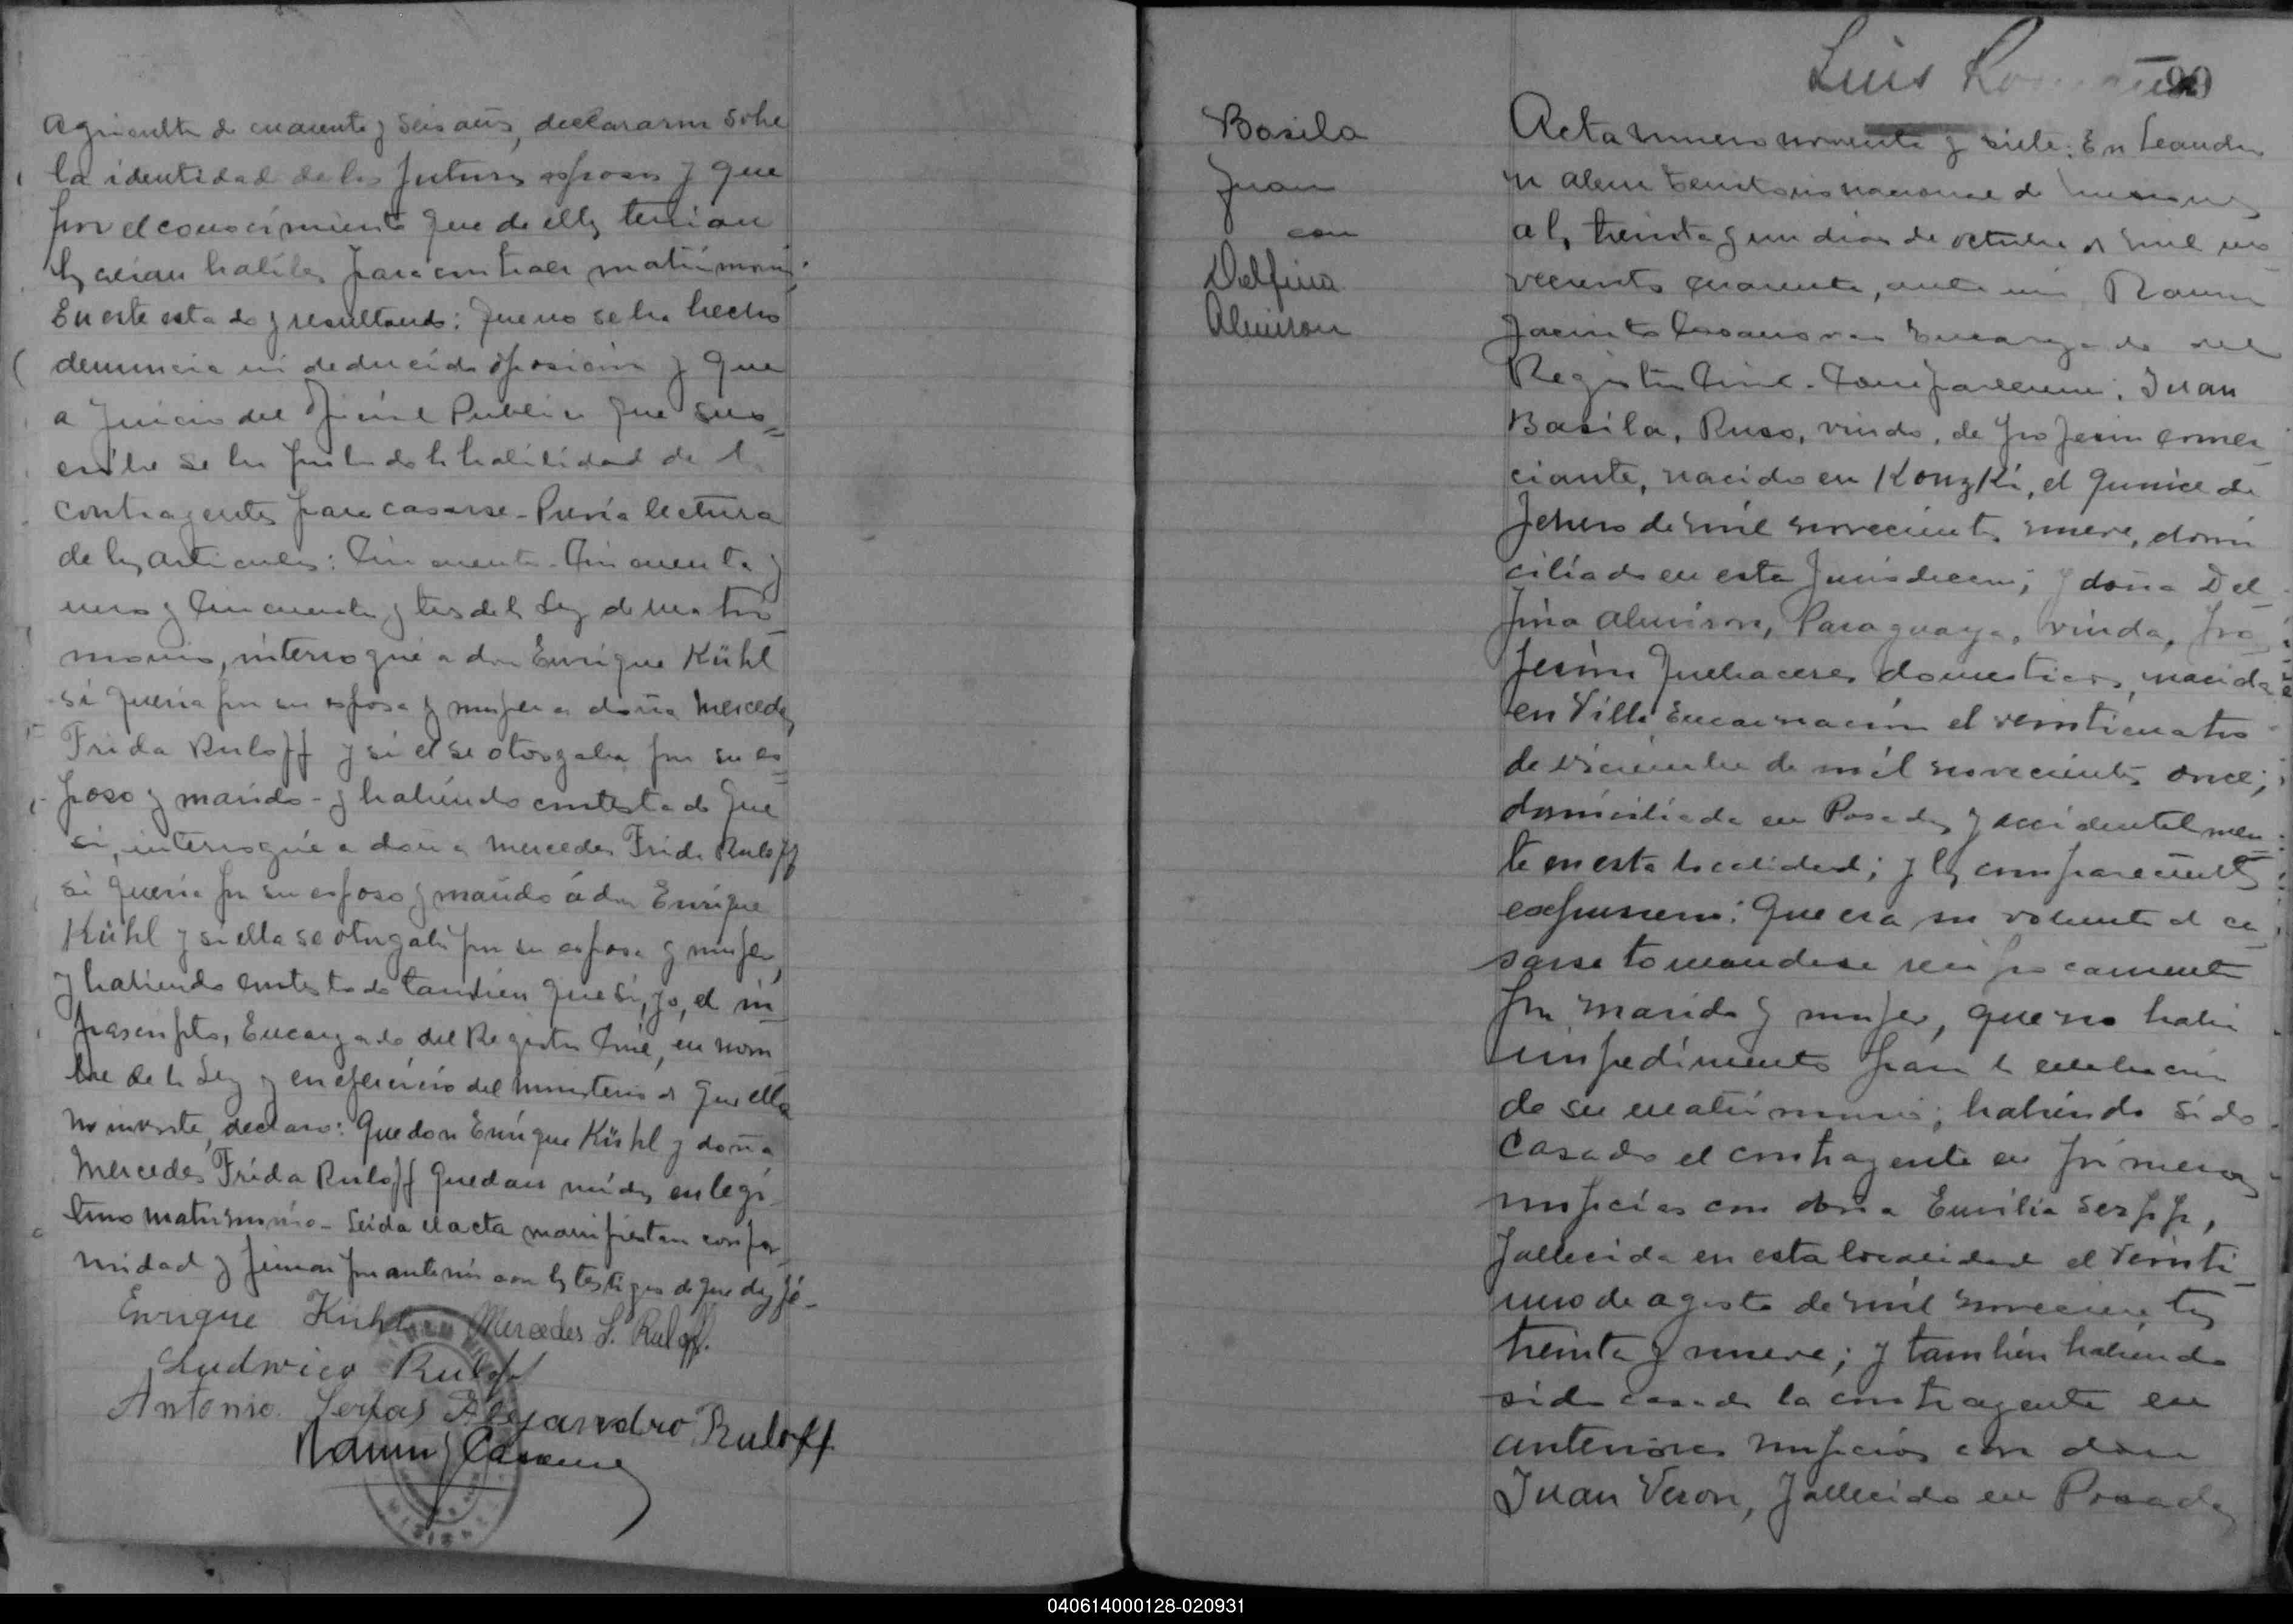 Agricultor de cuarenta y seis años, declararon sobre
la identidad de los futuros esposos y que
por el conocimiento que de ellos tenian
los creian habiles para contraer matrimonio.
En este estado y resultando: Que no se ha hecho
denuncia ni deducido oposicion y que
a juicio del Oficial Publico que sus=
cribe se ha probado la habilidad de los
contrayentes para casarse - Previa lectura
de los articulos: Cincuenta - Cincuenta y
uno y Cincuenta y tres de la Ley de matri
monio, interrogué a don Enrique Kühl
si queria por su esposa y mujer a doña Mercedes
Frida Ruloff y si el se otorgaba por su es=
poso y marido - y habiendo contestado que
si, interrogué a doña Mercedes Frida Ruloff
si queria por su esposo y marido á don Enrique
Kühl y si ella se otorgaba por su esposa y mujer,
y habiendo contestado tambien que si, yo, el in
frascripto, Encargado del Registro Civil, en nom
bre de la Ley y en ejercicio del ministerio de que ella
me inviste, declaro: Que don Enrique Kühl y doña
Mercedes Frida Ruloff quedan unidos en legi-
timo matrimonio - Leida el acta manifiestan confor-
midad y firman por ante mi con los testigos de que doy fé -
Enrique Kühl Mercedes F. Ruloff.
Ludwico Ruloff
Antonio Alejandro Ruloff
Ramon J
MISIONES
Luis
99
Basila
Juan
con
Delfina
Almiron
Acta numero noventa y siete: En Leandro
N Alem territorio nacional de Misiones
a los treinta y un dias de octubre de mil no
vecientos cuarenta, ante mi Ramon
Jacinto Encargado del
Registro Civil - Comparecieron: Juan
Basila, Ruso, viudo, de profesion comer
ciante, nacido en Konzki, el quince de
Febrero de mil novecientos nueve, domi
ciliado en esta Jurisdiccion; y doña Del-
fina Almiron, Paraguaya, viuda, pro
fesion quehaceres domesticos, nacida
en Villa Encarnacion el veinticuatro
de diciembre de mil novecientos once;
domiciliada en Posadas y accidentalmen
te en esta localidad; y los comparecientes
expusieron: Que era su voluntad ca-
sarse tomandose reciprocamente
por marido y mujer, que no habia
impedimento para la celebracion
de su matrimonio; habiendo sido
casado el contrayente en primeras
nupcias con doña Emilia Serpp,
fallecida en esta localidad el veinti-
uno de agosto de mil novecientos
treinta y nueve; y tambien habiendo
sido casada la contrayente en
anteriores nupcias con don
Juan Veron, fallecido en Posadas
040614000128-020931